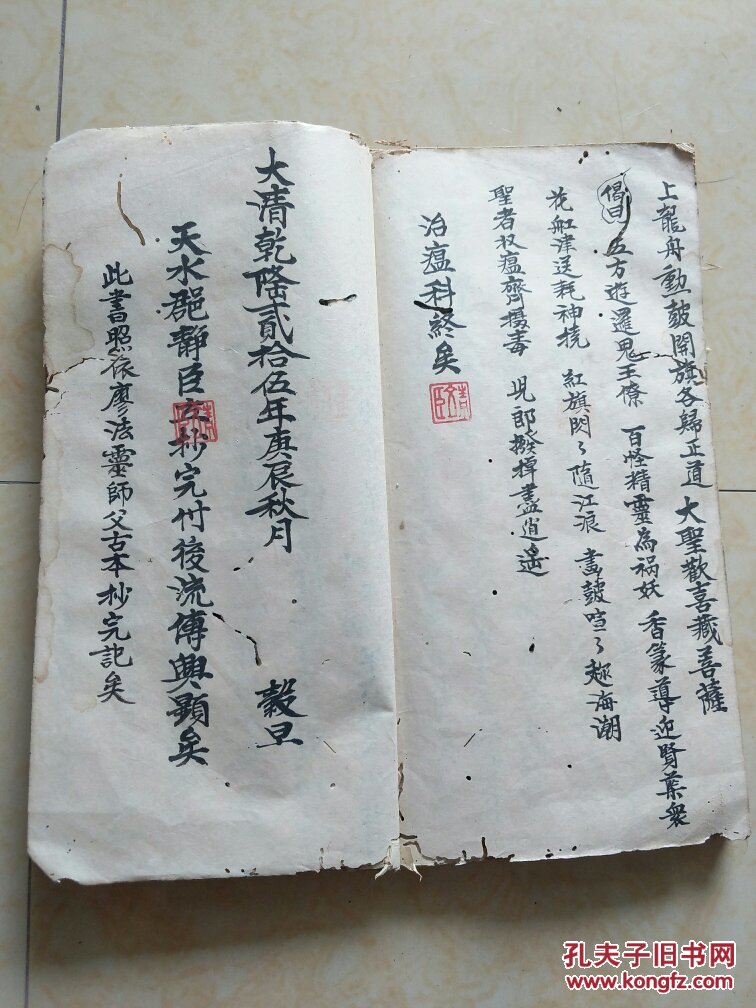 上龍舟動鼓開旗各歸正道 大聖歡喜藏菩薩
偈曰 五方遊邏鬼王僚 百怪精靈為禍妖 香篆導迎賢葉衆
花舡津送耗神橈 紅旗閃々隨江浪 畫鼓喧々趂海潮
聖者收瘟齊摄毒 児郎撥棹盡逍遙
治瘟科終矣
大清乾隆貳拾伍年庚辰秋月 穀旦
天水郡静臣立抄完付後流傳興顕矣
此書照依廖法靈師父古本抄完記矣
孔夫子旧书网
www.kongfz.com